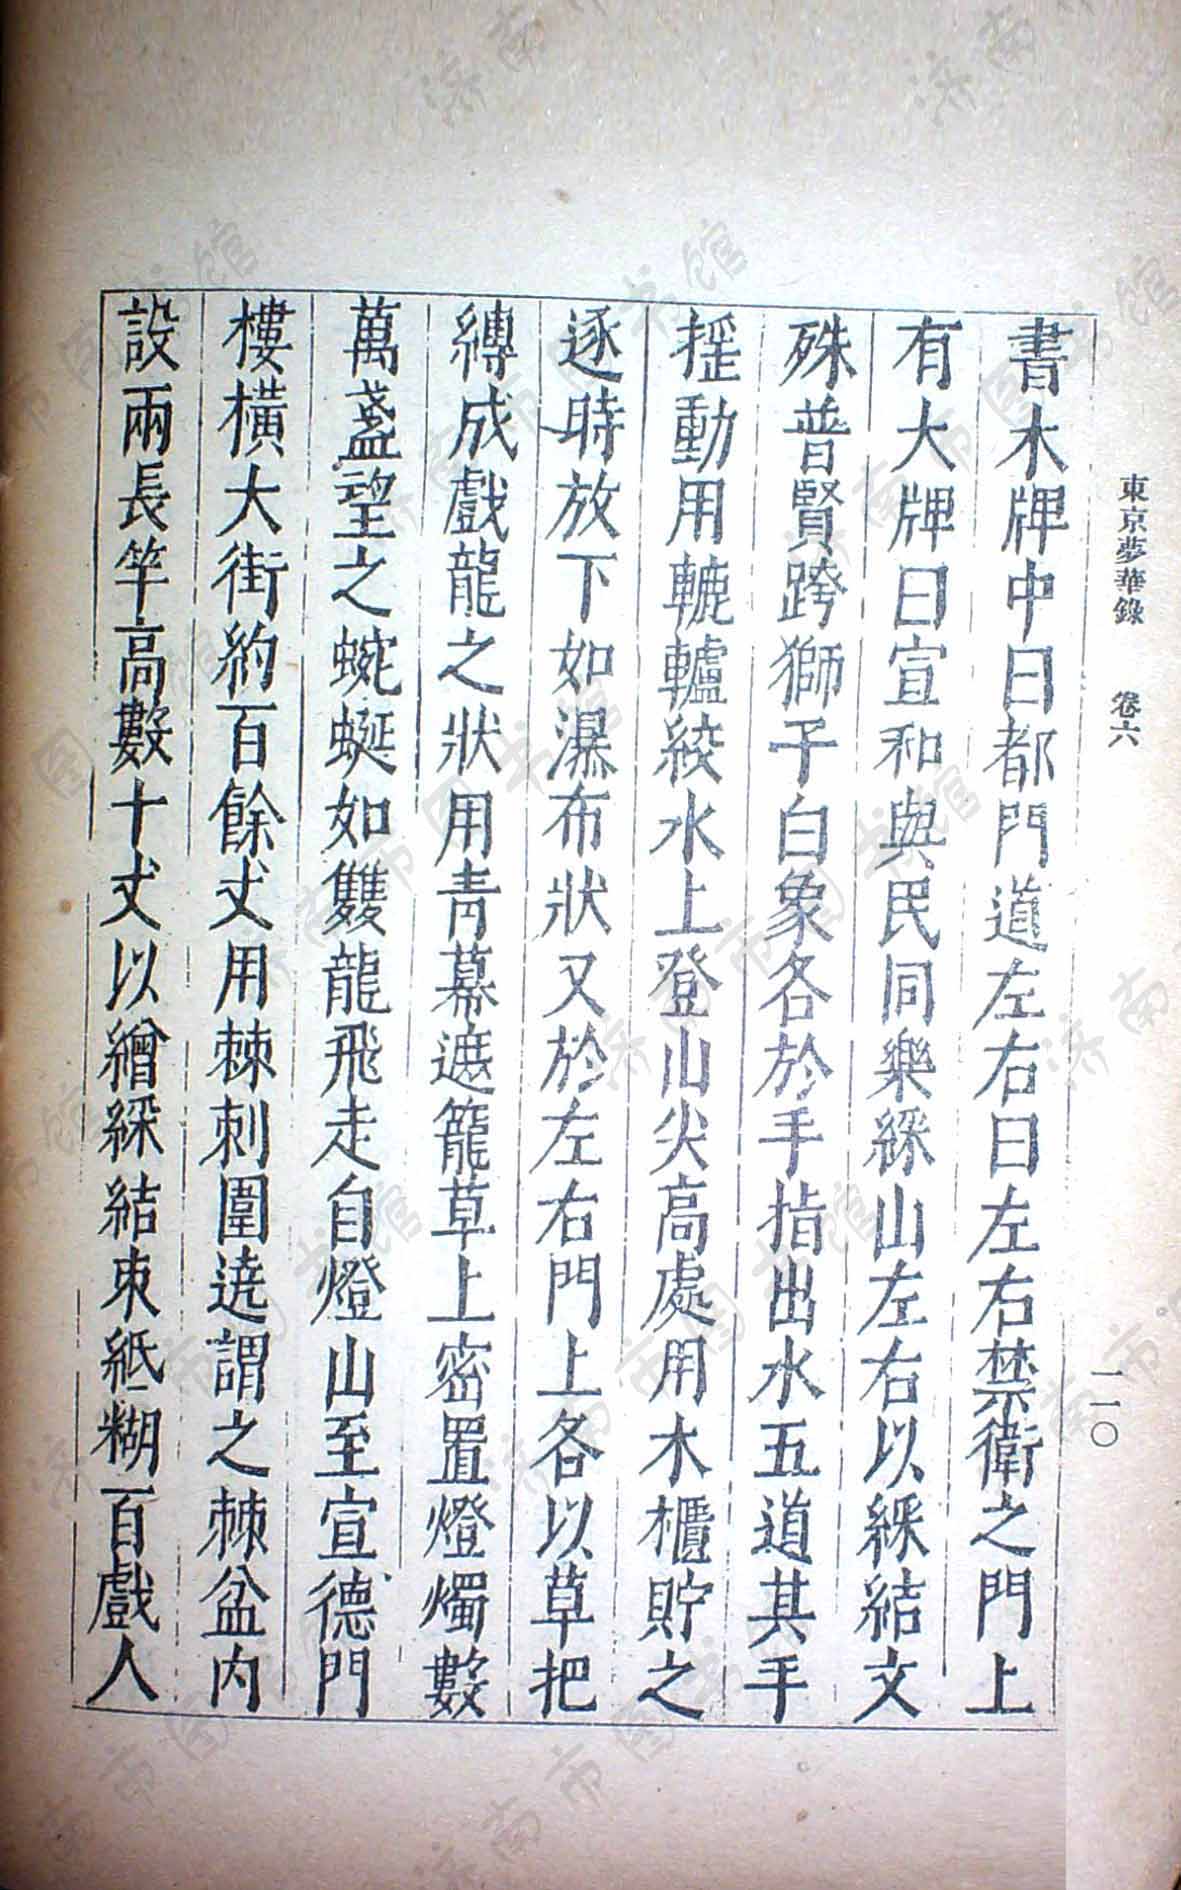 東京夢華錄 卷六 一一〇
書木牌中曰都門道左右曰左右禁衛之門上
有大牌曰宣和與民同樂綵山左右以綵結文
殊普賢跨獅子白象各於手指出水五道其手
揺動用轆轤絞水上登山尖高處用木櫃貯之
逐時放下如瀑布狀又於左右門上各以草把
縛成戲龍之狀用青幕遮籠草上密置燈燭數
萬盞望之蜿蜒如雙龍飛走自燈山至宣德門
樓橫大街約百餘丈用棘刺圍遶謂之棘盆內
設兩長竿高數十丈以繒綵結束紙糊百戲人
济南市图书馆